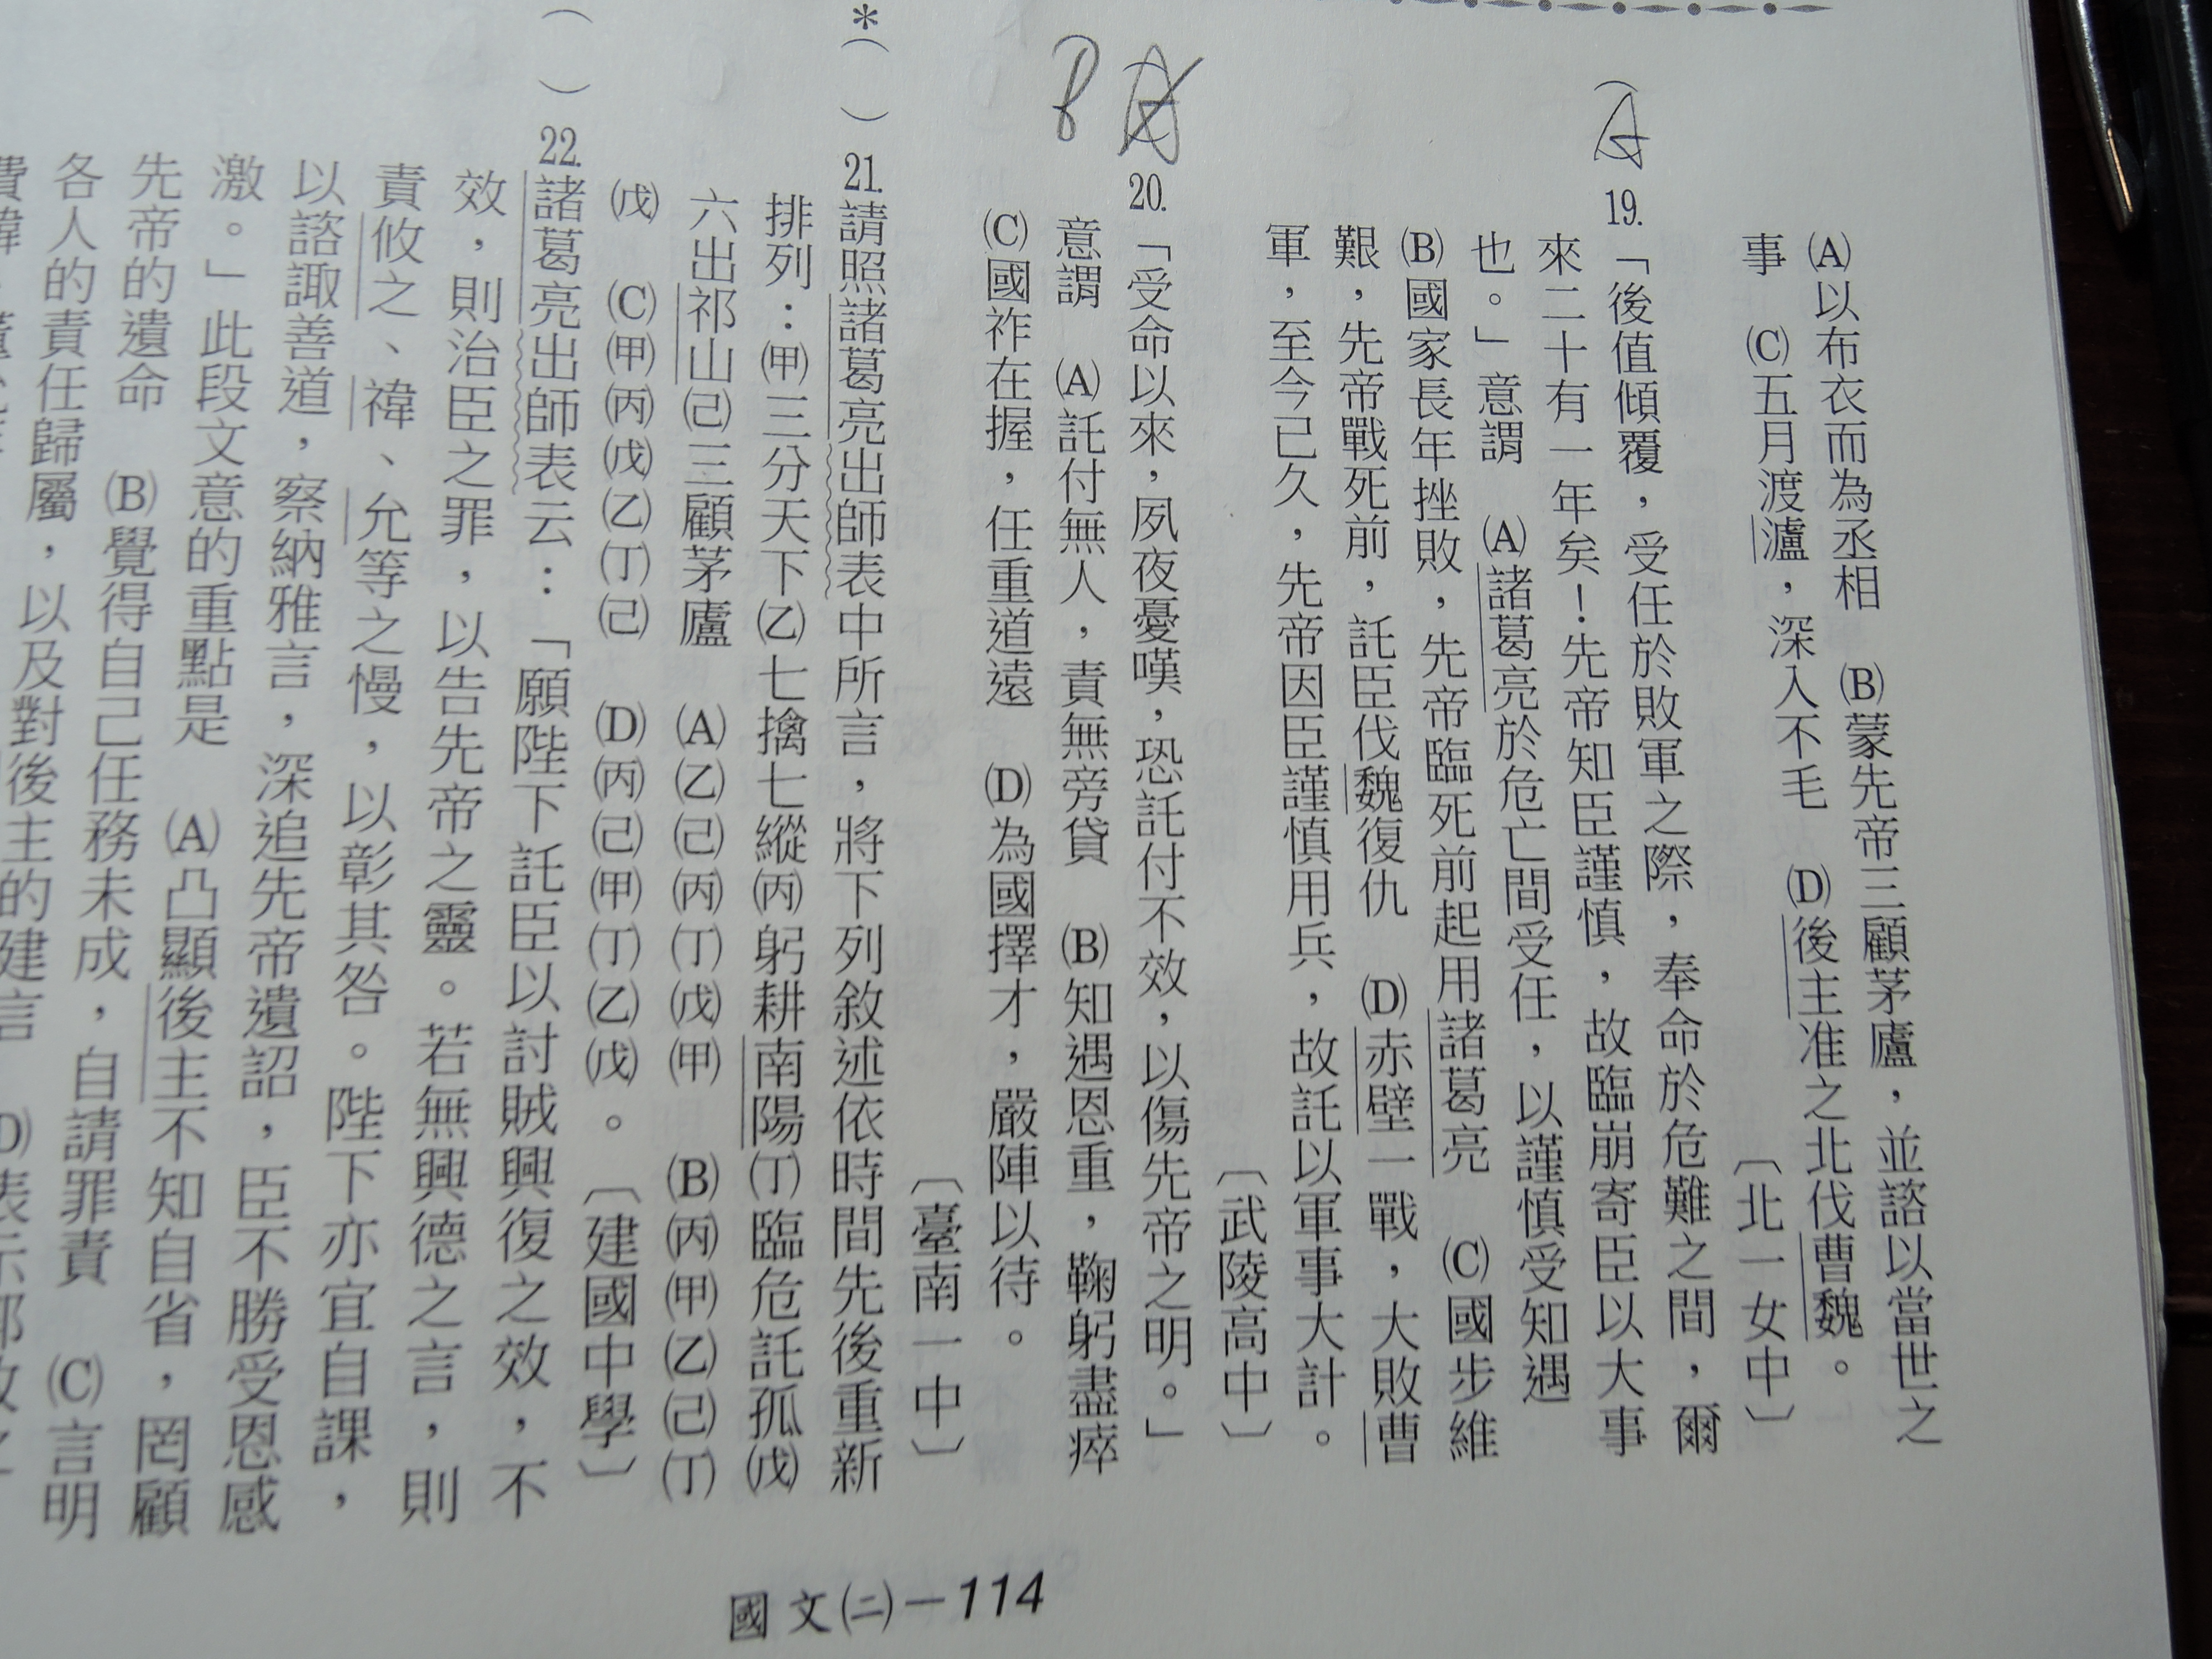 (A)以布衣而為丞相　(B)蒙先帝三顧茅廬，並諮以當世之
事　(C)五月渡瀘，深入不毛　(D)後主准之北伐曹魏。
〔北一女中〕
(A
19.「後值傾覆，受任於敗軍之際，奉命於危難之間，爾
來二十有一年矣！先帝知臣謹慎，故臨崩寄臣以大事
也。」意謂　(A)諸葛亮於危亡間受任，以謹慎受知遇
(B)國家長年挫敗，先帝臨死前起用諸葛亮　(C)國步維
艱，先帝戰死前，託臣伐魏復仇　(D)赤壁一戰，大敗曹
軍，至今已久，先帝因臣謹慎用兵，故託以軍事大計。
〔武陵高中〕
B
20.「受命以來，夙夜憂嘆，恐託付不效，以傷先帝之明。」
意謂　(A)託付無人，責無旁貸　(B)知遇恩重，鞠躬盡瘁
(C)國祚在握，任重道遠　(D)為國擇才，嚴陣以待。
〔臺南一中〕
*(　)21.請照諸葛亮出師表中所言，將下列敘述依時間先後重新
排列：(甲)三分天下(乙)七擒七縱(丙)躬耕南陽(丁)臨危託孤(戊)
六出祁山(己)三顧茅廬　(A)(乙)(己)(丙)(丁)(戊)(甲)　(B)(丙)(甲)(乙)(己)(丁)
(戊)　(C)(甲)(丙)(戊)(乙)(丁)(己)　(D)(丙)(己)(甲)(丁)(乙)(戊)。〔建國中學〕
(　)22.諸葛亮出師表云：「願陛下託臣以討賊興復之效，不
效，則治臣之罪，以告先帝之靈。若無興德之言，則
責攸之、禕、允等之慢，以彰其咎。陛下亦宜自課，
以諮諏善道，察納雅言，深追先帝遺詔，臣不勝受恩感
激。」此段文意的重點是　(A)凸顯後主不知自省，罔顧
先帝的遺命　(B)覺得自己任務未成，自請罪責　(C)言明
各人的責任歸屬，以及對後主的建言　(D)表示
國文(二)－114